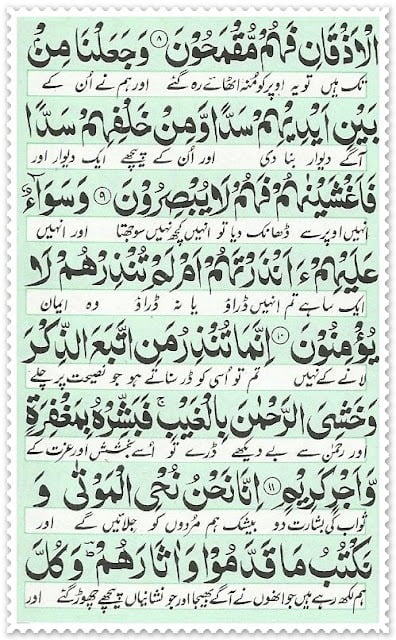 الْاَذْقَانِ فَهُمْ مُّقْمَحُوْنَ ۝۸ وَجَعَلْنَا مِنْۢ
تک ہیں تو یہ اوپر کو منہ اٹھائے رہ گئے اور ہم نے اُن کے
بَيْنِ اَيْدِيْهِمْ سَدًّا وَّمِنْ خَلْفِهِمْ سَدًّا
آگے دیوار بنا دی اور اُن کے پیچھے ایک دیوار اور
فَاَغْشَيْنٰهُمْ فَهُمْ لَا يُبْصِرُوْنَ ۝۹ وَسَوَآءٌ
انہیں اوپر سے ڈھانک دیا تو انہیں کچھ نہیں سوجھتا اور انہیں
عَلَيْهِمْ ءَاَنْذَرْتَهُمْ اَمْ لَمْ تُنْذِرْهُمْ لَا
ایک سا ہے تم انہیں ڈراؤ یا نہ ڈراؤ وہ ایمان
يُؤْمِنُوْنَ ۝۱۰ اِنَّمَا تُنْذِرُ مَنِ اتَّبَعَ الذِّكْرَ
لانے کے نہیں تم تو اُسی کو ڈر سناتے ہو جو نصیحت پر چلے
وَخَشِيَ الرَّحْمٰنَ بِالْغَيْبِ ۚ فَبَشِّرْهُ بِمَغْفِرَةٍ
اور رحمٰن سے بے دیکھے ڈرے تو اُسے بخشش اور عزت کے
وَّاَجْرٍ كَرِيْمٍ ۝۱۱ اِنَّا نَحْنُ نُحْيِ الْمَوْتٰى وَ
ثواب کی بشارت دو بیشک ہم مُردوں کو جلائیں گے اور
نَكْتُبُ مَا قَدَّمُوْا وَاٰثَارَهُمْ ؕ وَكُلَّ
ہم لکھ رہے ہیں جو انھوں نے آگے بھیجا اور جو نشانیاں پیچھے چھوڑ گئے اور